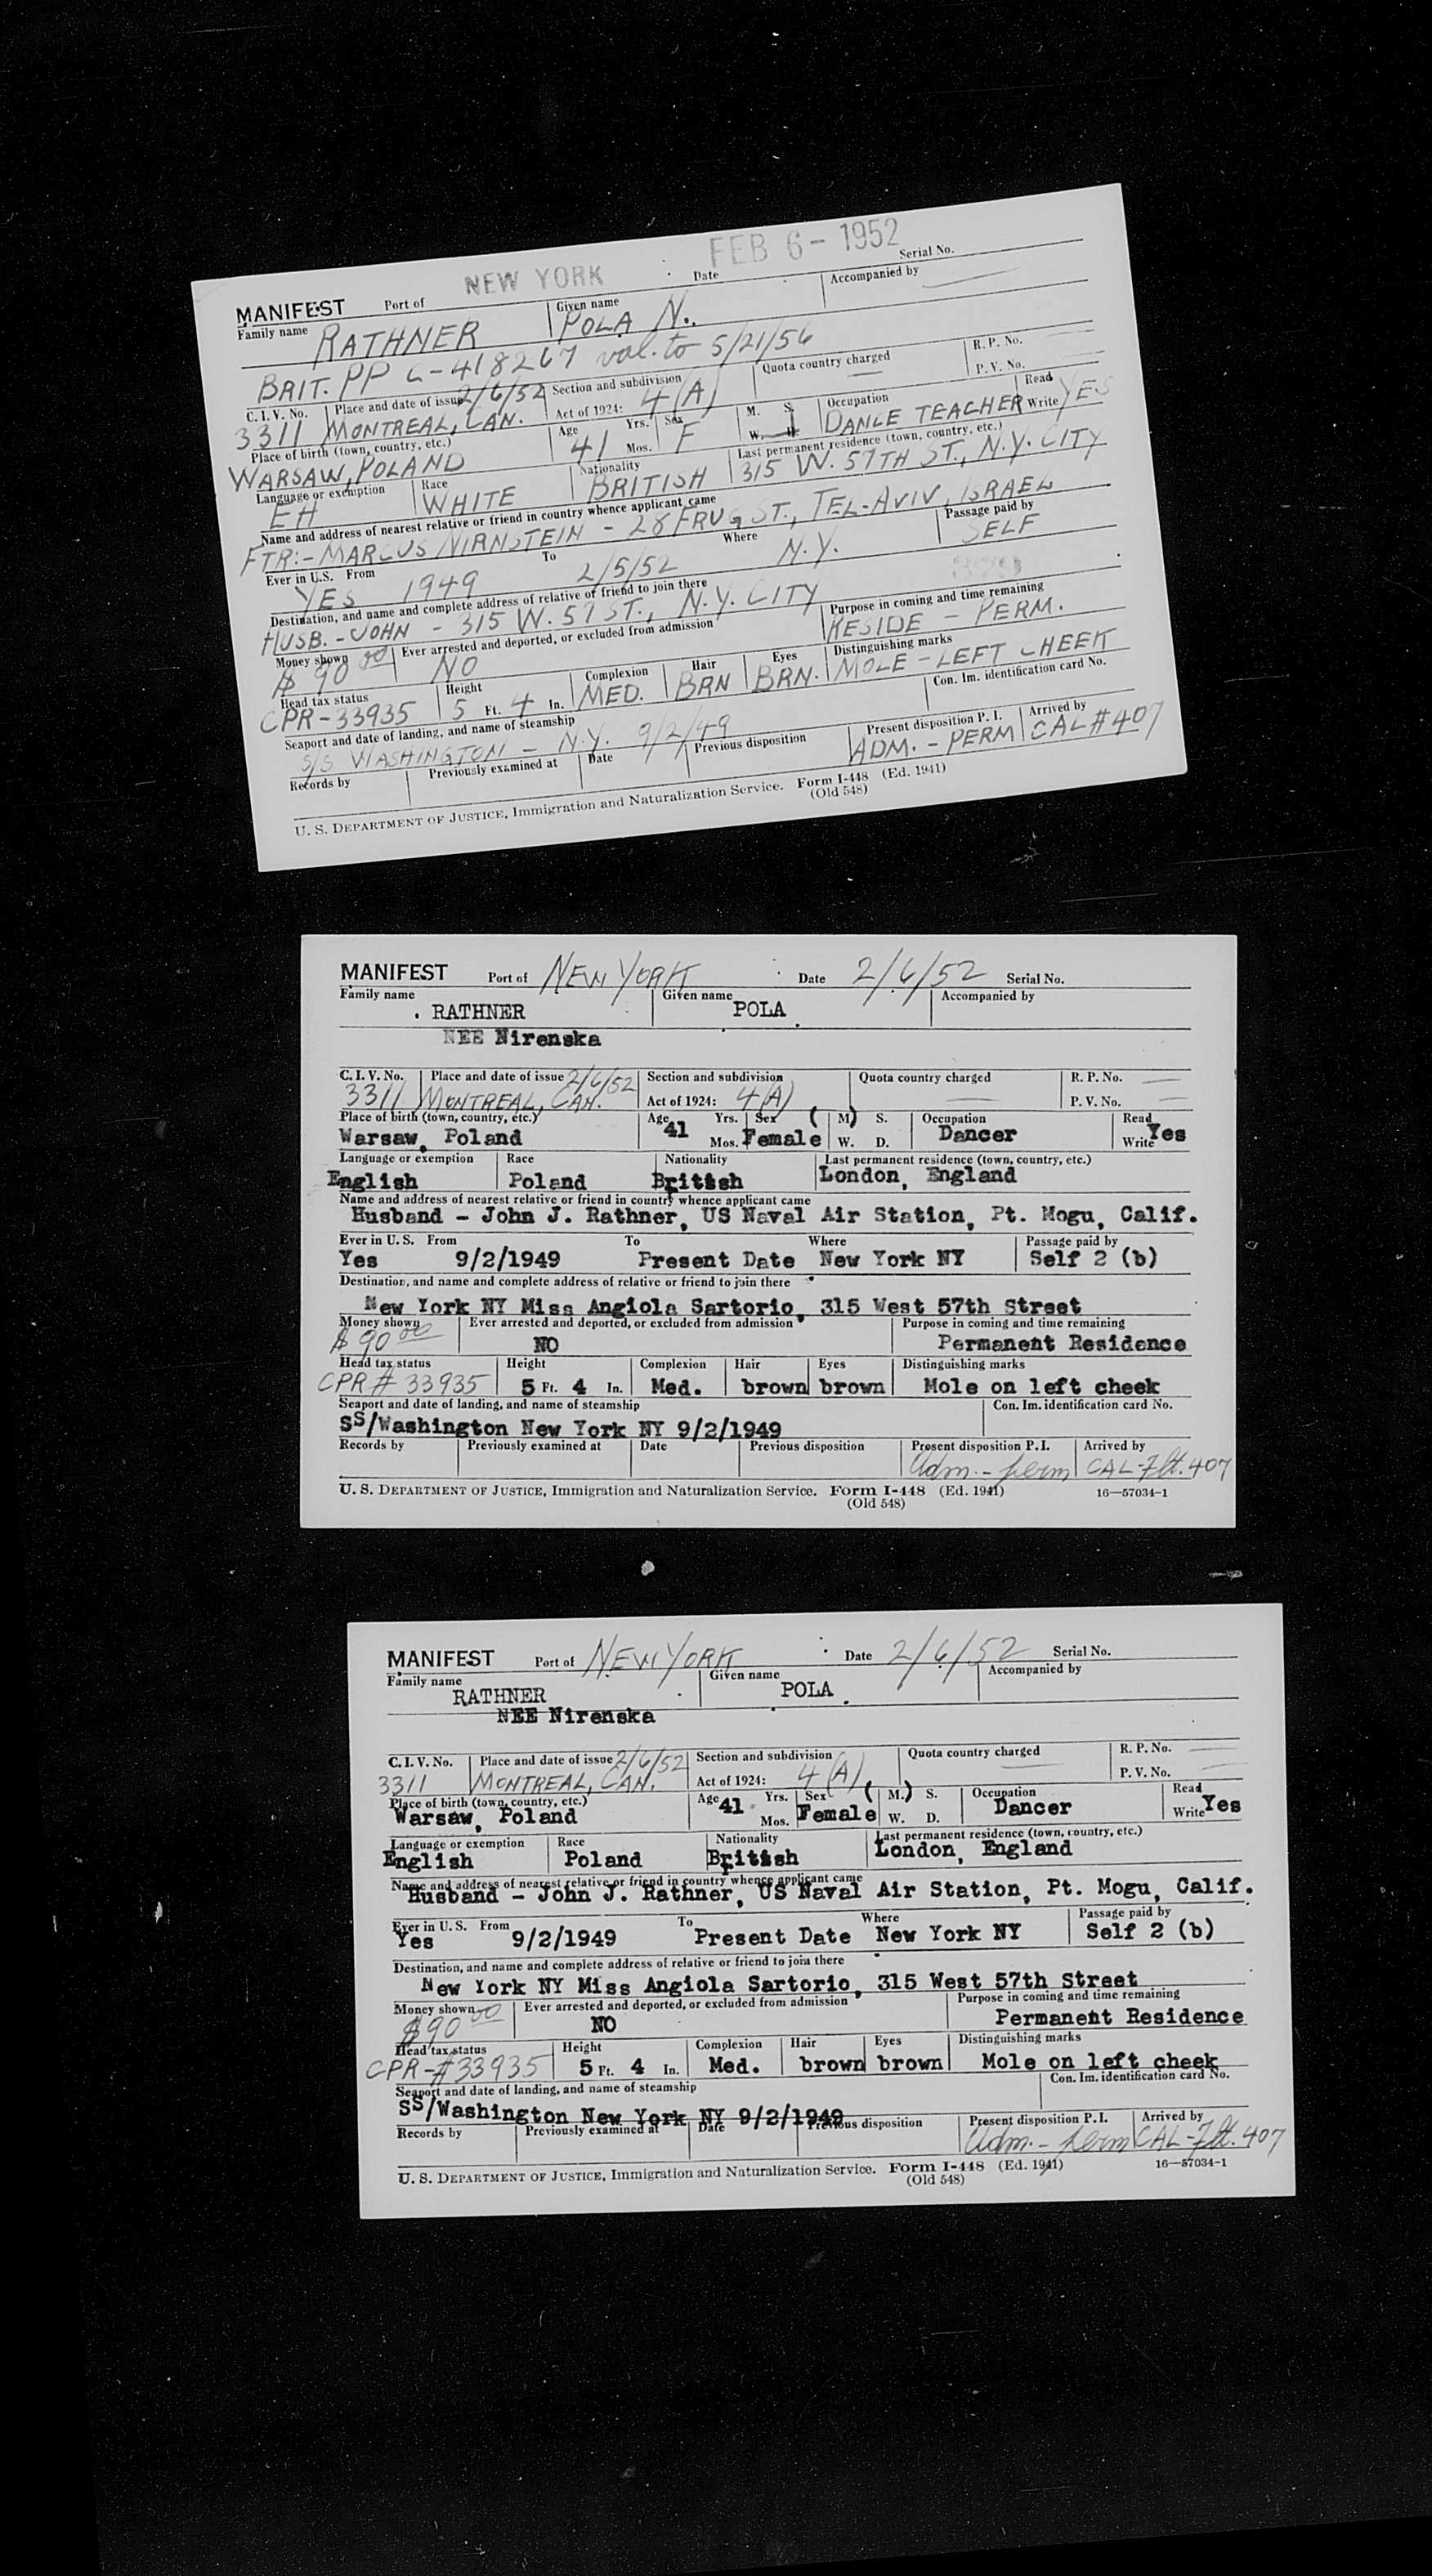 FEB 6 - 1952
MANIFEST Port of NEW YORK Date Serial No.
Family name RATHNER Given name POLA N. Accompanied by
BRIT. PP C-418267 val. to 5/21/56
C. I. V. No. 3311 Place and date of issue 2/6/52 MONTREAL, CAN. Section and subdivision Act of 1924: 4(A) Quota country charged — R. P. No. P. V. No.
Place of birth (town, country, etc.) WARSAW, POLAND Age 41 Yrs. Mos. Sex F M. S. W. D. Occupation DANCE TEACHER Read Write YES
Language or exemption EH Race WHITE Nationality BRITISH Last permanent residence (town, country, etc.) 315 W. 57TH ST., N.Y. CITY
Name and address of nearest relative or friend in country whence applicant came
FTR:- MARCUS NIRNSTEIN - 28 FRUG ST., TEL-AVIV, ISRAEL
Ever in U.S. YES From 1949 To 2/5/52 Where N.Y. Passage paid by SELF
Destination, and name and complete address of relative or friend to join there
HUSB. - JOHN - 315 W. 57 ST., N.Y. CITY
Money shown $90 00 Ever arrested and deported, or excluded from admission NO Purpose in coming and time remaining RESIDE - PERM.
Head tax status CPR-33935 Height 5 Ft. 4 In. Complexion MED. Hair BRN Eyes BRN. Distinguishing marks MOLE - LEFT CHEEK
Seaport and date of landing, and name of steamship S/S WASHINGTON - N.Y. 9/2/49 Con. Im. identification card No.
Records by Previously examined at Date Previous disposition Present disposition P. I. ADM. - PERM Arrived by CAL #407
U. S. DEPARTMENT OF JUSTICE, Immigration and Naturalization Service. Form I-448 (Ed. 1941)
(Old 548)
MANIFEST Port of NEW YORK Date 2/6/52 Serial No.
Family name RATHNER Given name POLA Accompanied by
NEE Nirenska
C. I. V. No. 3311 Place and date of issue 2/6/52 MONTREAL, CAN. Section and subdivision Act of 1924: 4(A) Quota country charged — R. P. No. — P. V. No. —
Place of birth (town, country, etc.) Warsaw, Poland Age 41 Yrs. Mos. Sex Female (M) S. W. D. Occupation Dancer Read Write Yes
Language or exemption English Race Poland Nationality British Last permanent residence (town, country, etc.) London, England
Name and address of nearest relative or friend in country whence applicant came
Husband - John J. Rathner, US Naval Air Station, Pt. Mogu, Calif.
Ever in U. S. Yes From 9/2/1949 To Present Date Where New York NY Passage paid by Self 2 (b)
Destination, and name and complete address of relative or friend to join there
New York NY Miss Angiola Sartorio, 315 West 57th Street
Money shown $90 00 Ever arrested and deported, or excluded from admission NO Purpose in coming and time remaining Permanent Residence
Head tax status CPR # 33935 Height 5 Ft. 4 In. Complexion Med. Hair brown Eyes brown Distinguishing marks Mole on left cheek
Seaport and date of landing, and name of steamship SS/Washington New York NY 9/2/1949 Con. Im. identification card No.
Records by Previously examined at Date Previous disposition Present disposition P. I. Adm. - perm Arrived by CAL-Flt. 407
U. S. DEPARTMENT OF JUSTICE, Immigration and Naturalization Service. Form I-448 (Ed. 1941) 16—57034-1
(Old 548)
MANIFEST Port of NEW YORK Date 2/6/52 Serial No.
Family name RATHNER Given name POLA Accompanied by
NEE Nirenska
C. I. V. No. 3311 Place and date of issue 2/6/52 MONTREAL, CAN. Section and subdivision Act of 1924: 4(A) Quota country charged — R. P. No. — P. V. No. —
Place of birth (town, country, etc.) Warsaw, Poland Age 41 Yrs. Mos. Sex Female (M.) S. W. D. Occupation Dancer Read Write Yes
Language or exemption English Race Poland Nationality British Last permanent residence (town, country, etc.) London, England
Name and address of nearest relative or friend in country whence applicant came
Husband - John J. Rathner, US Naval Air Station, Pt. Mogu, Calif.
Ever in U. S. Yes From 9/2/1949 To Present Date Where New York NY Passage paid by Self 2 (b)
Destination, and name and complete address of relative or friend to join there
New York NY Miss Angiola Sartorio, 315 West 57th Street
Money shown $90 00 Ever arrested and deported, or excluded from admission NO Purpose in coming and time remaining Permanent Residence
Head tax status CPR-#33935 Height 5 Ft. 4 In. Complexion Med. Hair brown Eyes brown Distinguishing marks Mole on left cheek
Seaport and date of landing, and name of steamship SS/Washington New York NY 9/2/1949 Con. Im. identification card No.
Records by Previously examined at Date Previous disposition Present disposition P. I. Adm. - perm Arrived by CAL-Flt. 407
U. S. DEPARTMENT OF JUSTICE, Immigration and Naturalization Service. Form I-448 (Ed. 1941) 16—57034-1
(Old 548)